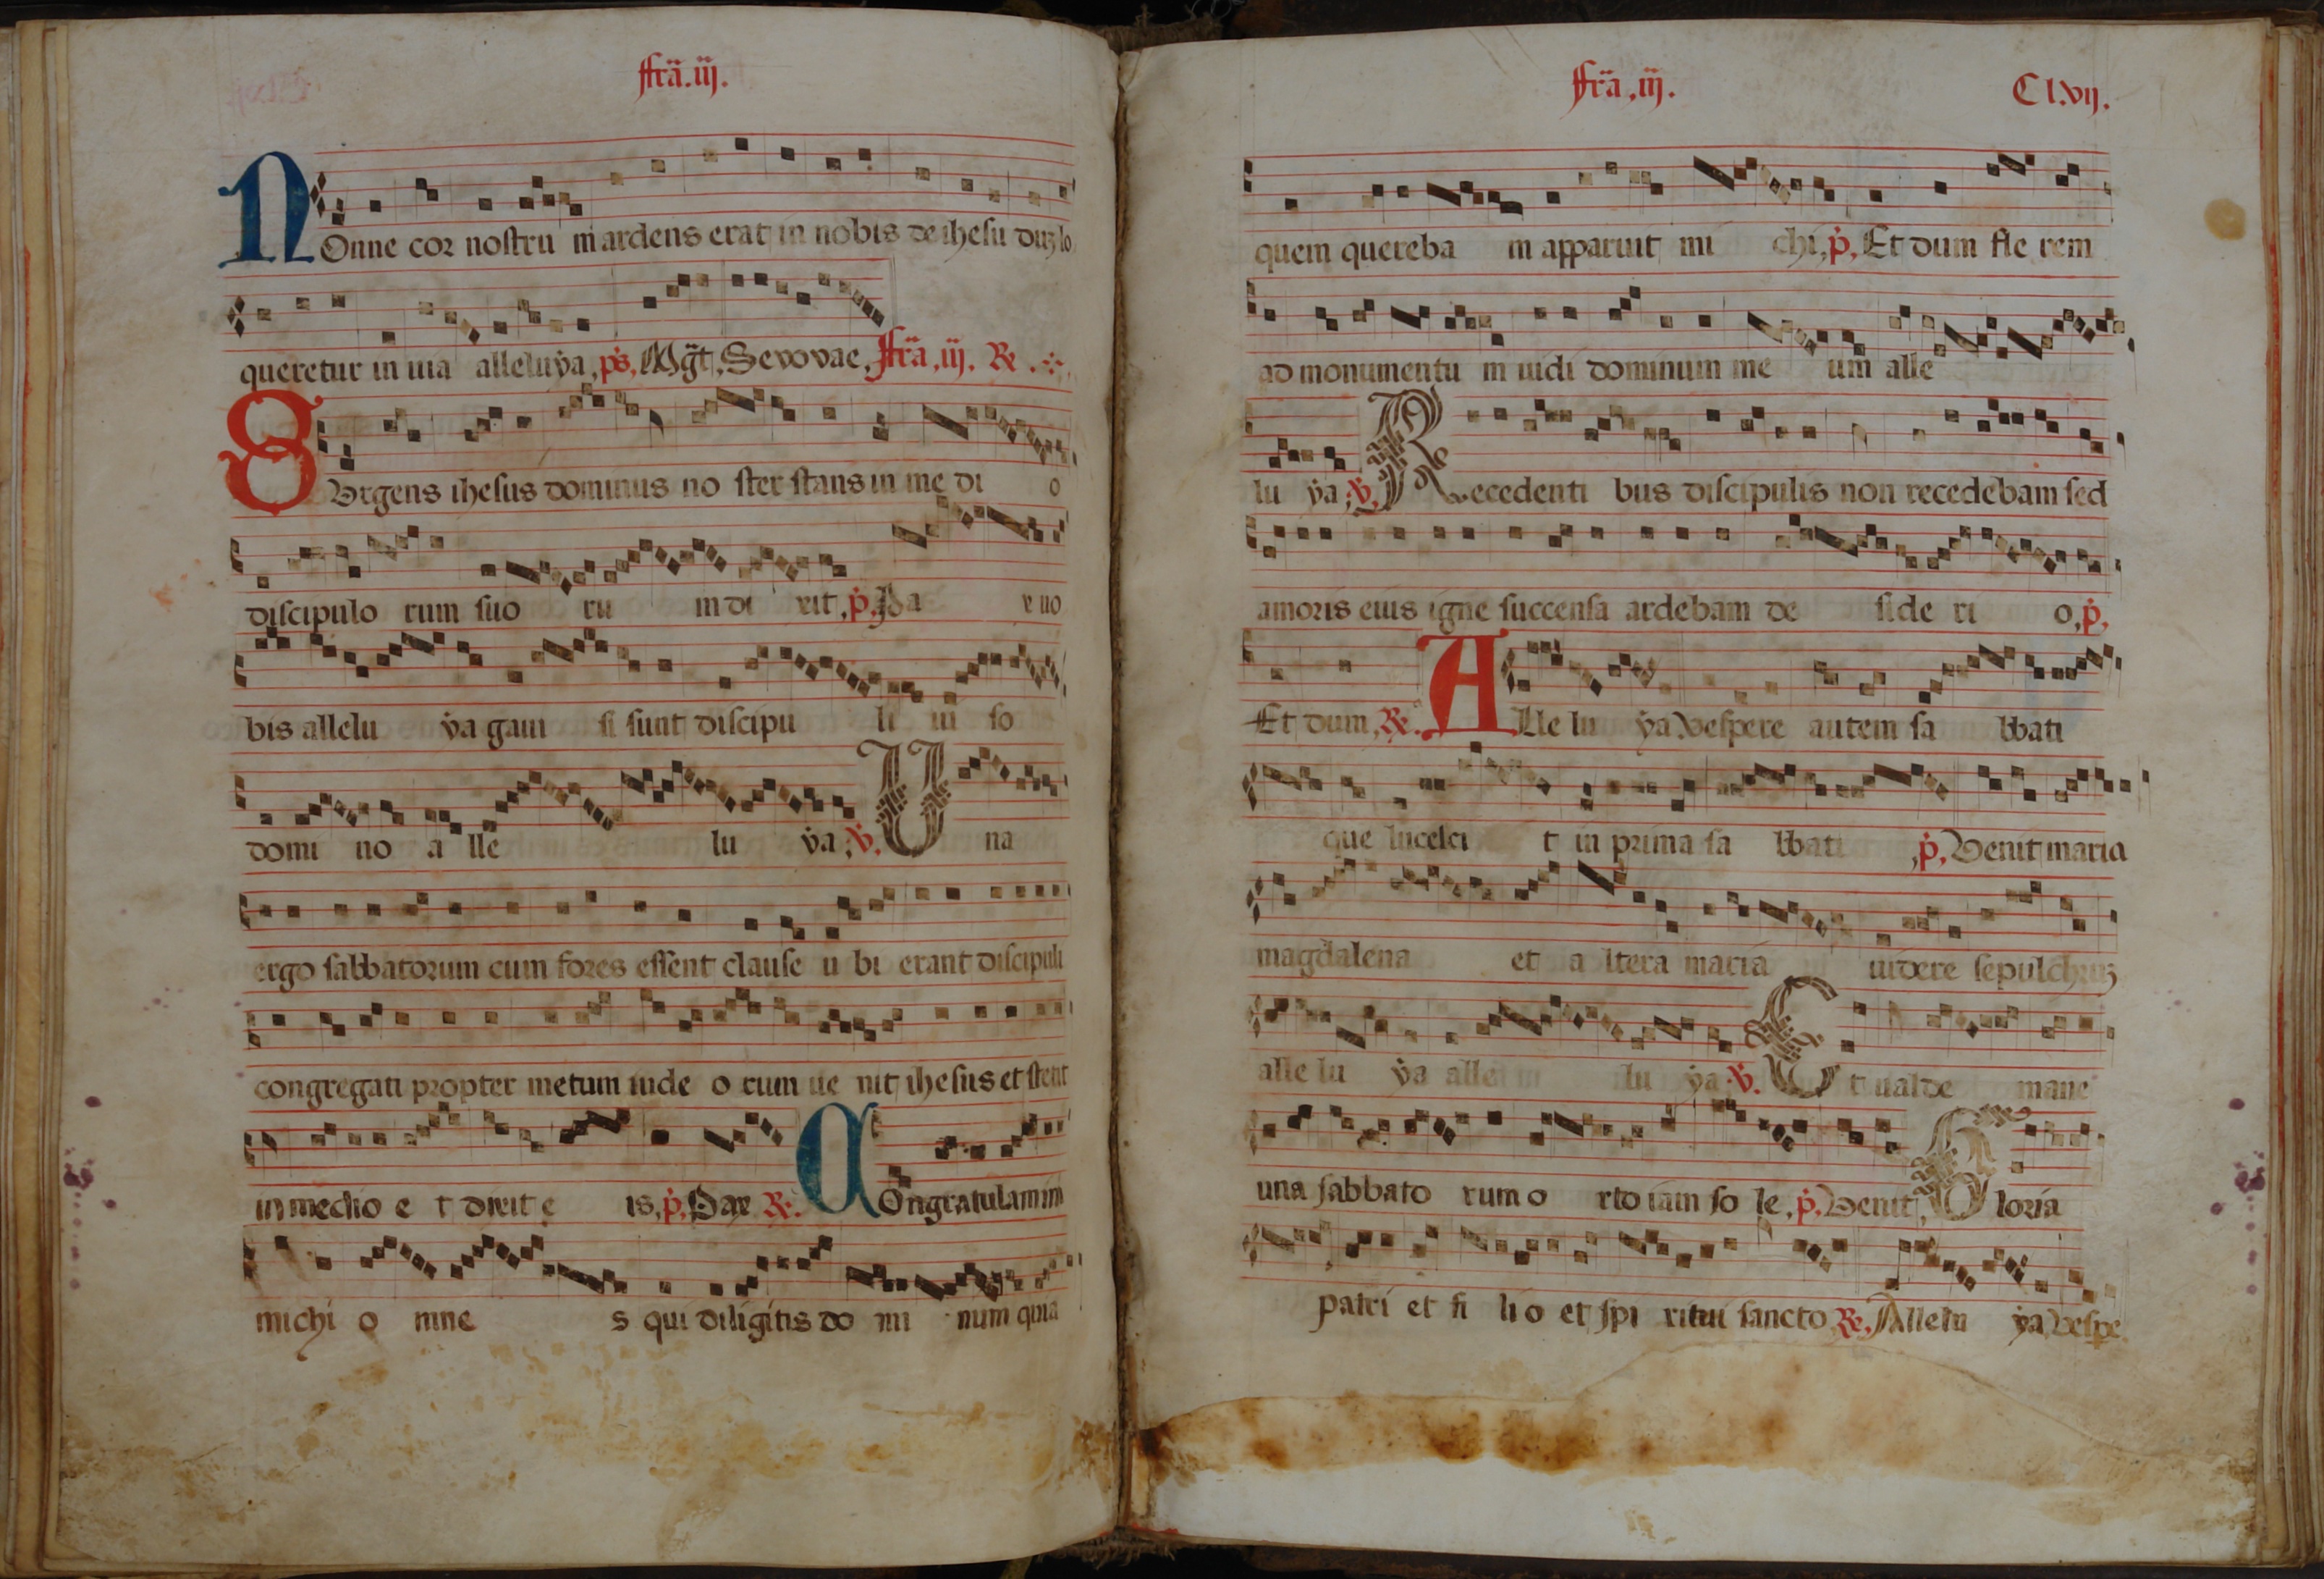 ffrã.iij.
NOnne cor nostru m ardens erat in nobis de ihesu duz lo
queretur in uia alleluya, ps, Mgt, Sevovae, ffrã, iij. R
SVrgens ihesus dominus no ster stans in me di o
discipulo rum suo ru m di xit, p, Pa x uo
bis allelu ya gaui si sunt discipu li ui so
domi no a lle lu ya, v. U na
ergo sabbatorum cum fores essent clause u bi erant discipuli
congregati propter metum iude o rum ue nit ihesus et stetit
in medio e t dixit e is, p, Pax R. COngratulamini
michi o mne s qui diligitis do mi num quia
ffrã, iij. CLvij.
quem quereba m apparuit mi chi, p, Et dum fle rem
ad monumentu m uidi dominum me um alle
lu ya, v, Recedenti bus discipulis non recedebam sed
amoris eius igne succensa ardebam de side ri o, p,
Et dum, R. Alle lu ya Vespere autem sa bbati
que lucesci t in prima sa bbati , p, Venit maria
magdalena et a ltera maria uidere sepulchruz
alle lu ya alle lu ya, v. E t ualde mane
una sabbato rum o rto iam so le, p, Venit, Gloria
patri et fi li o et spi ritui sancto R, Allelu ya Vespe